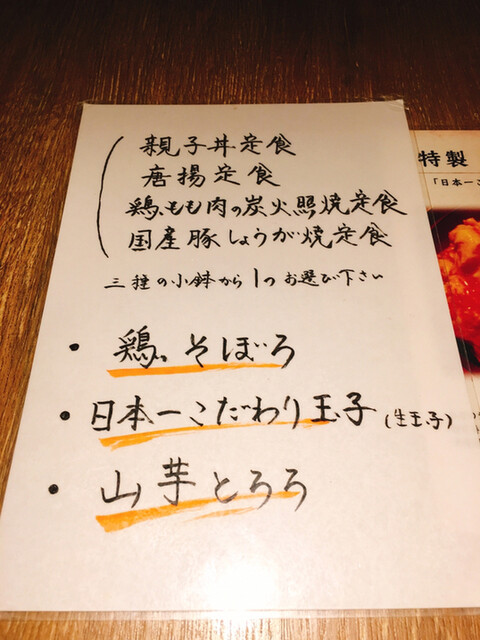 親子丼定食
唐揚定食
鶏もも肉の炭火照焼定食
国産豚しょうが焼定食
三種の小鉢から1つお選び下さい
・鶏そぼろ
・日本一こだわり玉子(生玉子)
・山芋とろろ
特製
「日本一こ